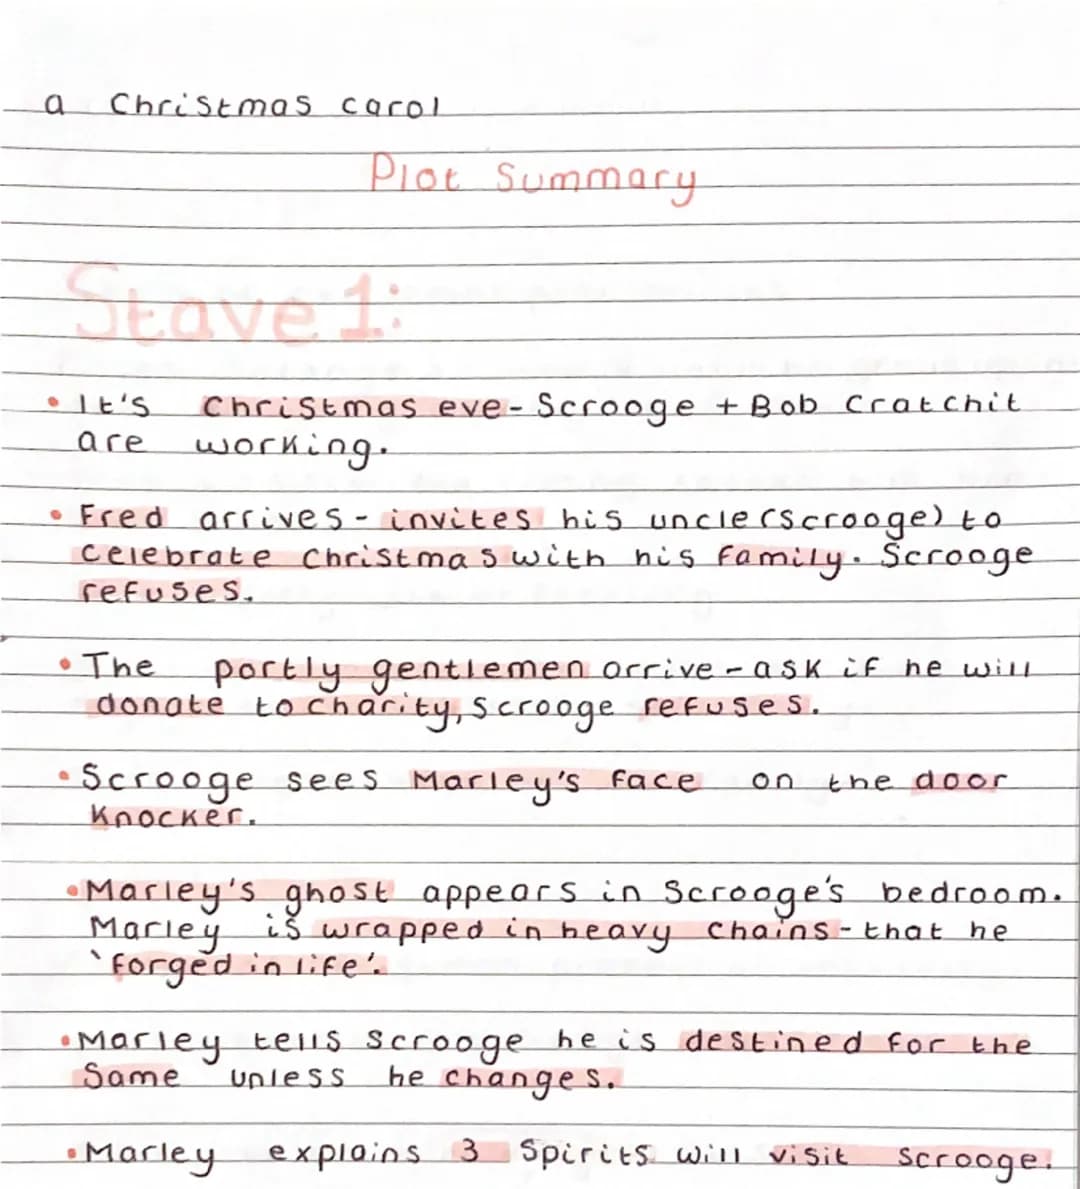 a Christmas carol
Plot Summary
Stave 1:
• It's Christmas eve - Scrooge + Bob Cratchit
are working.
• Fred arrives - invites his uncle (scrooge) to
celebrate Christmas with his family. Scrooge
refuses.
• The portly gentlemen arrive - ask if he will
donate to charity, Scrooge refuses.
• Scrooge sees Marley's face on the door
Knocker.
• Marley's ghost appears in Scrooge's bedroom.
Marley is wrapped in heavy chains - that he
'forged in life'.
• Marley tells Scrooge he is destined for the
Same unless he changes.
• Marley explains 3 Spirits will visit Scrooge.